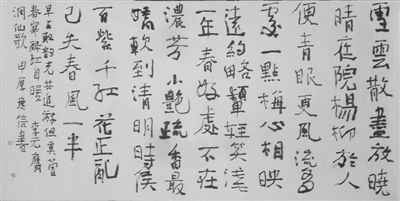 雪雲散盡放曉
晴庭院楊柳於人
便青眼更風流多
處一點梅心相映
遠約略顰輕笑淺
一年春好處不在
濃芳小艷疏香最
嬌軟到清明時候
百紫千紅花正亂
已失春風一半
早占取韶光共追遊但莫管
春寒醉紅自暖 李元膺
洞仙歌 書